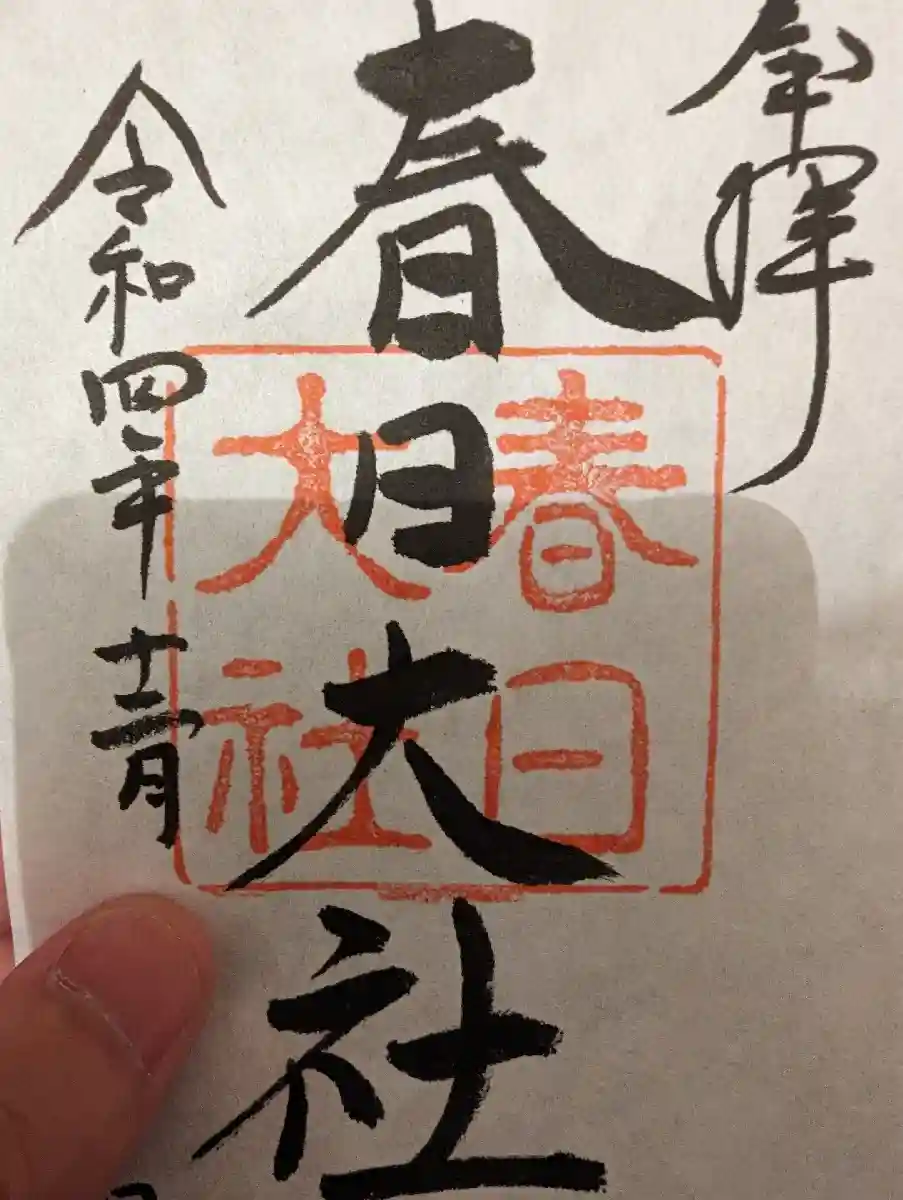 奉拝
春日大社
春日
大社
令和四年十二月